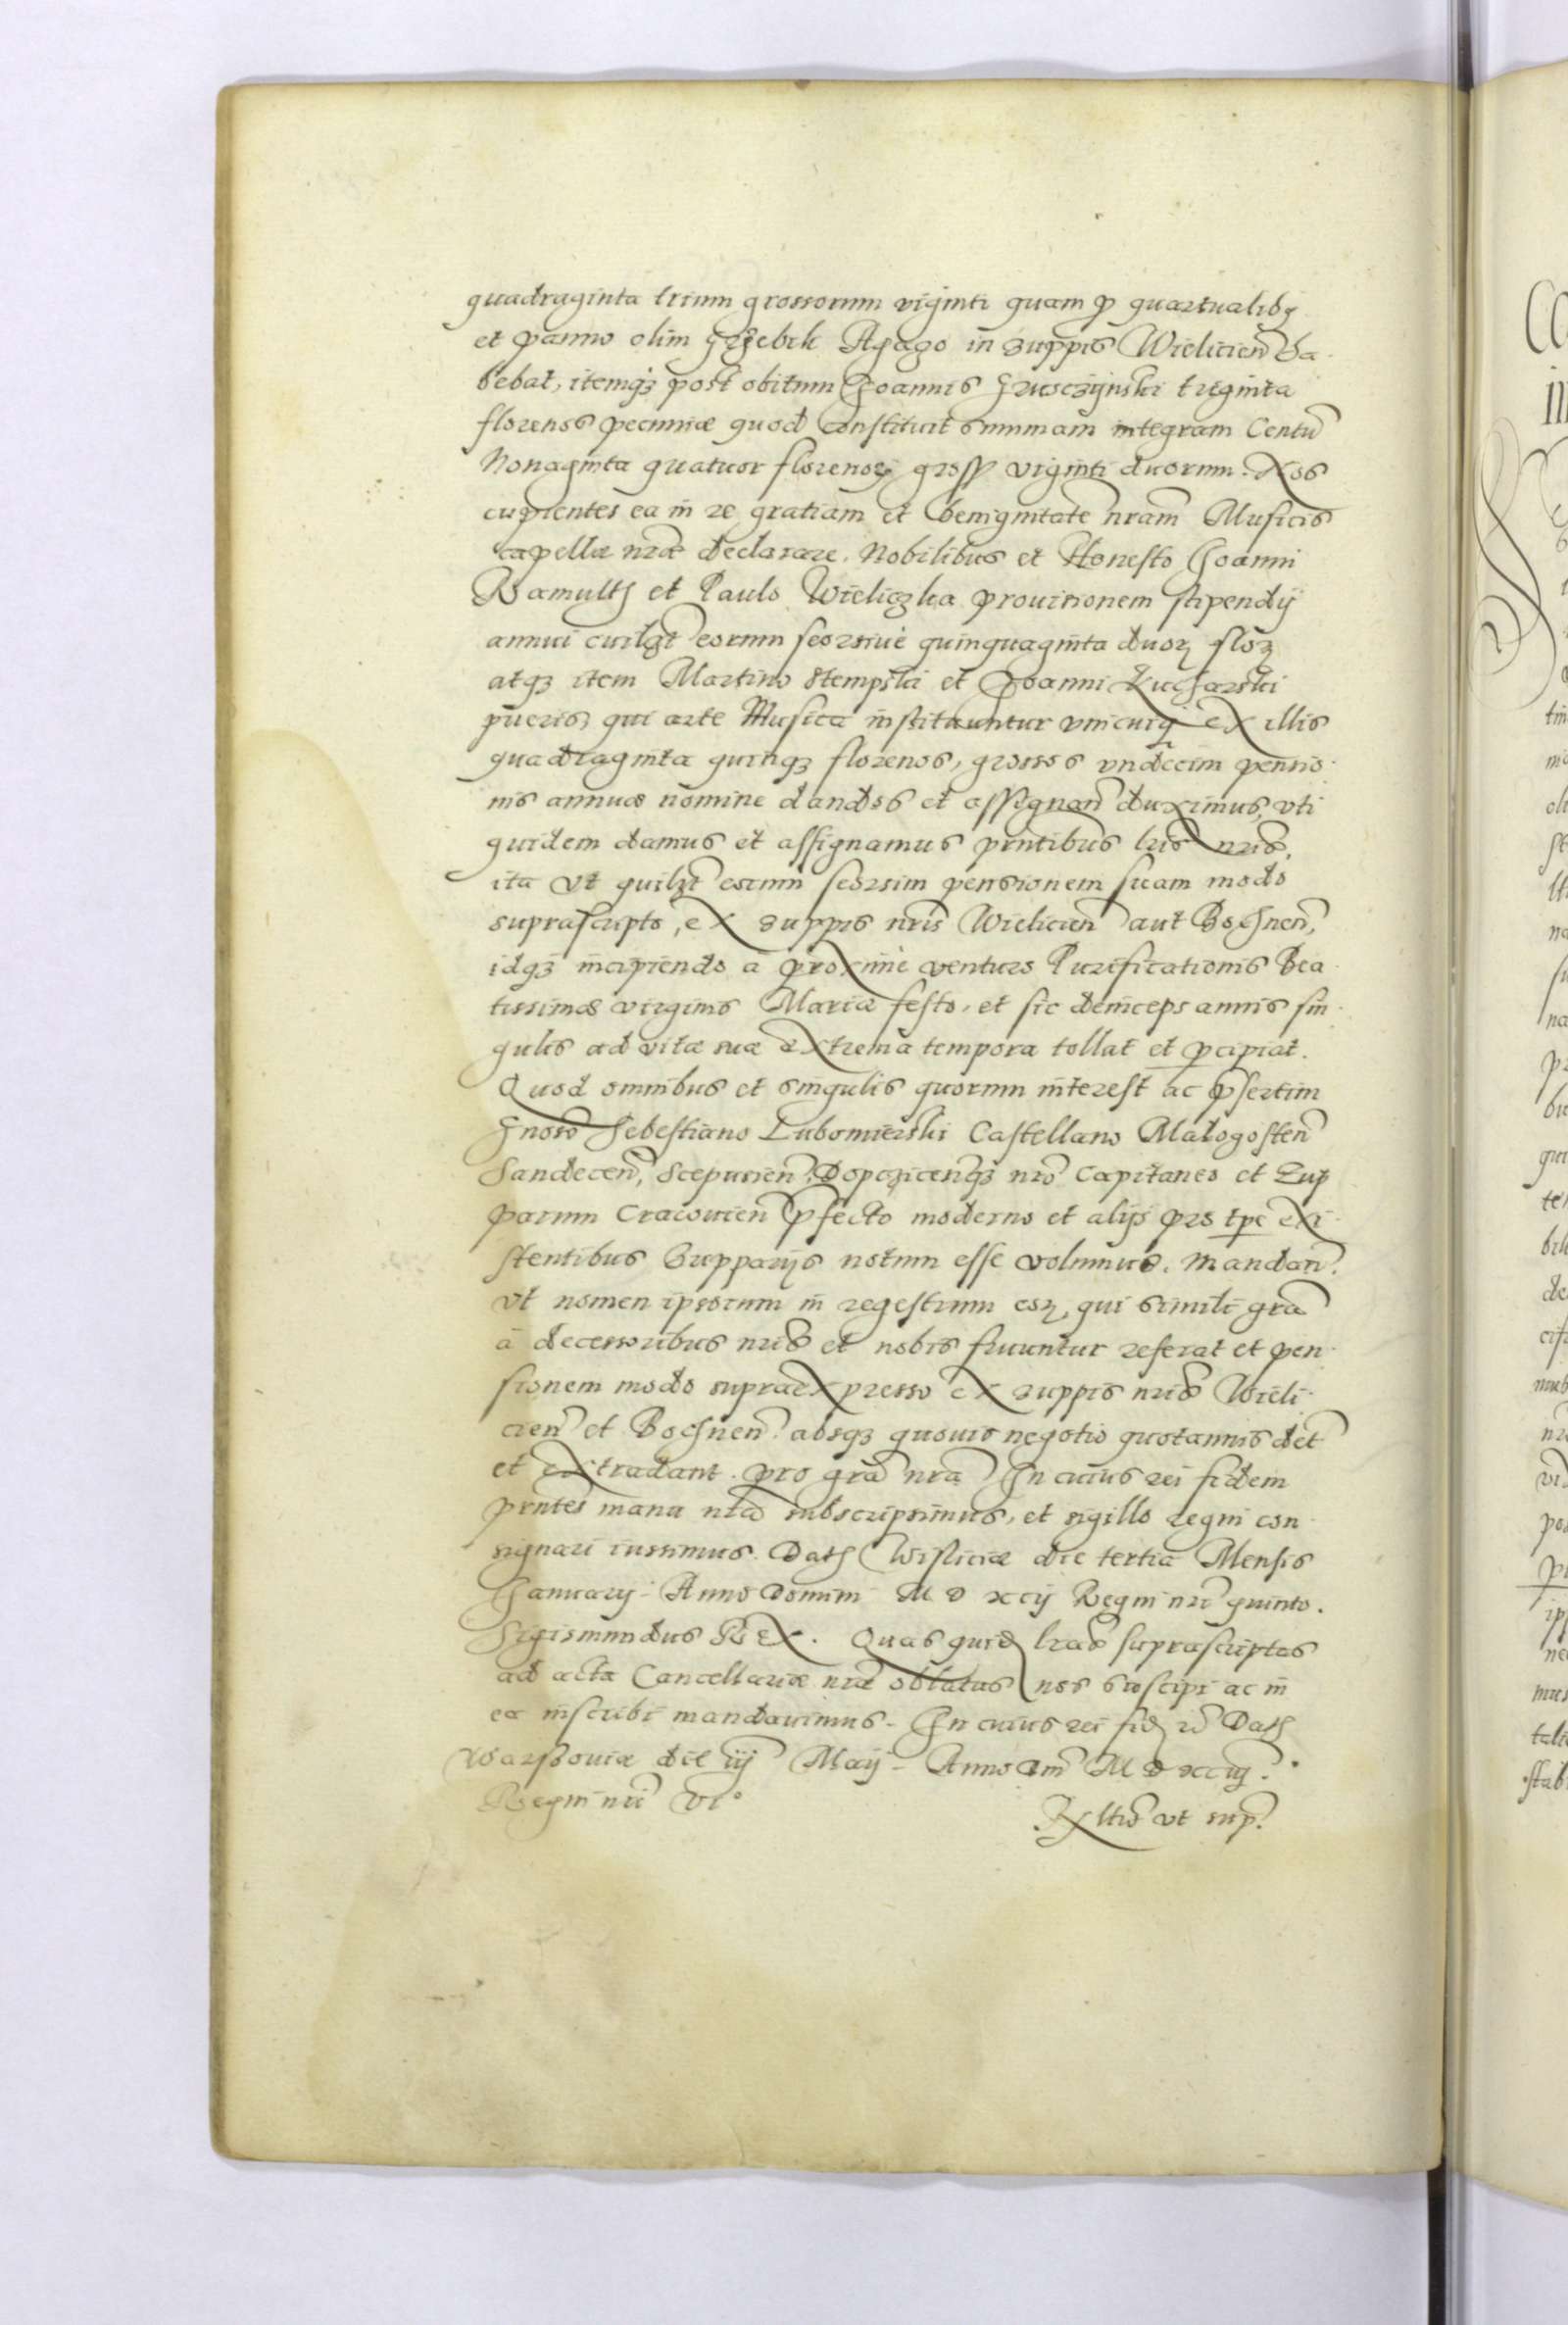 quadraginta trium grossorum viginti quam p quartualibq
et panno olim Grzebik Apago in zuppis Wielicien ha-
bebat, itemqz post obitum Joannis Gruszczijnski triginta
florenos pecuniæ quod constituit summam integram Centū
Nonaginta quatuor florenoꝝ gross viginti duorum. Nos
cupientes ea in re gratiam et benignitatē nram Musicis
capellæ nræ declarare, Nobilibus et Honesto Joanni
Bamulth et Paulo Wieliczka prouisionem stipendij
annui cuilzt eorum seorsiue quinquaginta duoꝝ floꝝ
atqz item Martino Stempski et Joanni Kucharski
pueris, qui arte Musica instituuntur vnicuiq ex illis
quadraginta quinqz florenos, grossos vndecim pensio-
nis annuæ nomine dandos et assignan duximus, vti
quidem damus et assignamus pntibus lris nris,
ita vt quilzt eorum seorsim pensionem suam modo
suprascripto, ex zuppis nris Wielicien aut Bochnen,
idqz incipiendo a proxime venturo Purificationis Bea-
tissimæ virginis Mariæ festo, et sic deinceps annis sin-
gulis ad vitæ suæ extrema tempora tollat et pcipiat.
Quod omnibus et singulis quorum interest ac psertim
Gnoso Sebestiano Lubomierski Castellano Malogosten
Sandecen, Scepusien, Dopczicenqz nro Capitaneo et Zup
parum Cracouien pfecto moderno et alijs pro tpe exi-
stentibus Zupparijs notum esse volumus. Mandan.
vt nomen ipsorum in regestrum eoꝝ, qui simili gra
a decessoribus nris et nobis fruuntur referat et pen-
sionem modo supraexpresso ex zuppis nris Wieli-
cien et Bochnen absqz quouis negotio quotannis det
et extradant. pro gra nra In cuius rei fidem
pntes manu nra subscripsimus, et sigillo regni con-
signari iussimus. Dath Wisliciæ die tertia Mensis
Januarij Anno Domini M D xcij Regni nri quinto.
Sigismundus Rex. Quas quid lras suprascriptas
ad acta Cancellariæ nræ oblatas nos suscipi ac in
ea inscribi mandauimus. In cuius rei fid Dath
Warssouiæ die iij Maij Anno Dni M D xciij.
Regni nri vi° 
Rltio vt sup.